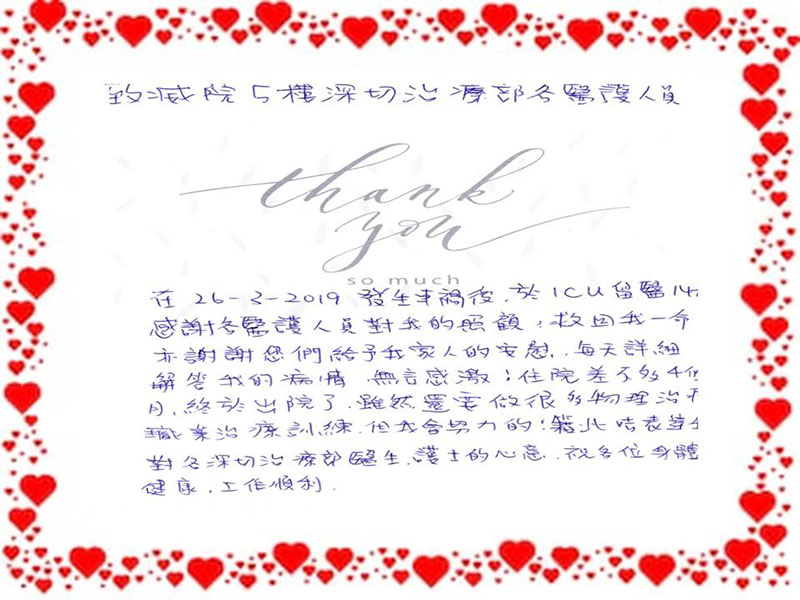 致威院5樓深切治療部各醫護人員
thank
you
so much
在26-3-2019 發生車禍後,於ICU留醫14
感謝各醫護人員對我的照顧,救回我一命
亦謝謝您們給予我家人的安慰,每天詳細
解答我的病情,無言感激!住院差不多4個
月,終於出院了,雖然還要做很多物理治
職業治療訓練,但我會努力的!藉此咭表
對各深切治療部醫生,護士的心意,祝各位身體
健康,工作順利.